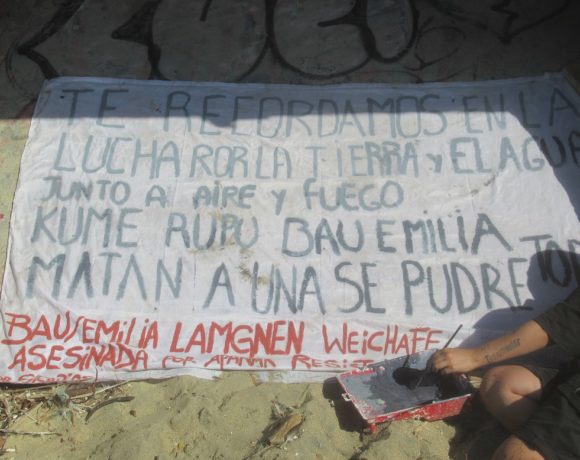 TE RECORDAMOS EN LA
LUCHA POR LA TIERRA y EL AGUA
JUNTO A AIRE Y FUEGO
KUME RUPU BAU EMILIA
MATAN A UNA SE PUDRE TOD
BAU/EMILIA LAMGNEN WEICHAFE
ASESINADA POR